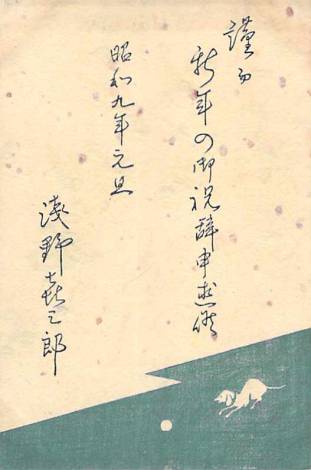 謹而
新年の御祝辞申述候
昭和九年元旦
浅野喜三郎